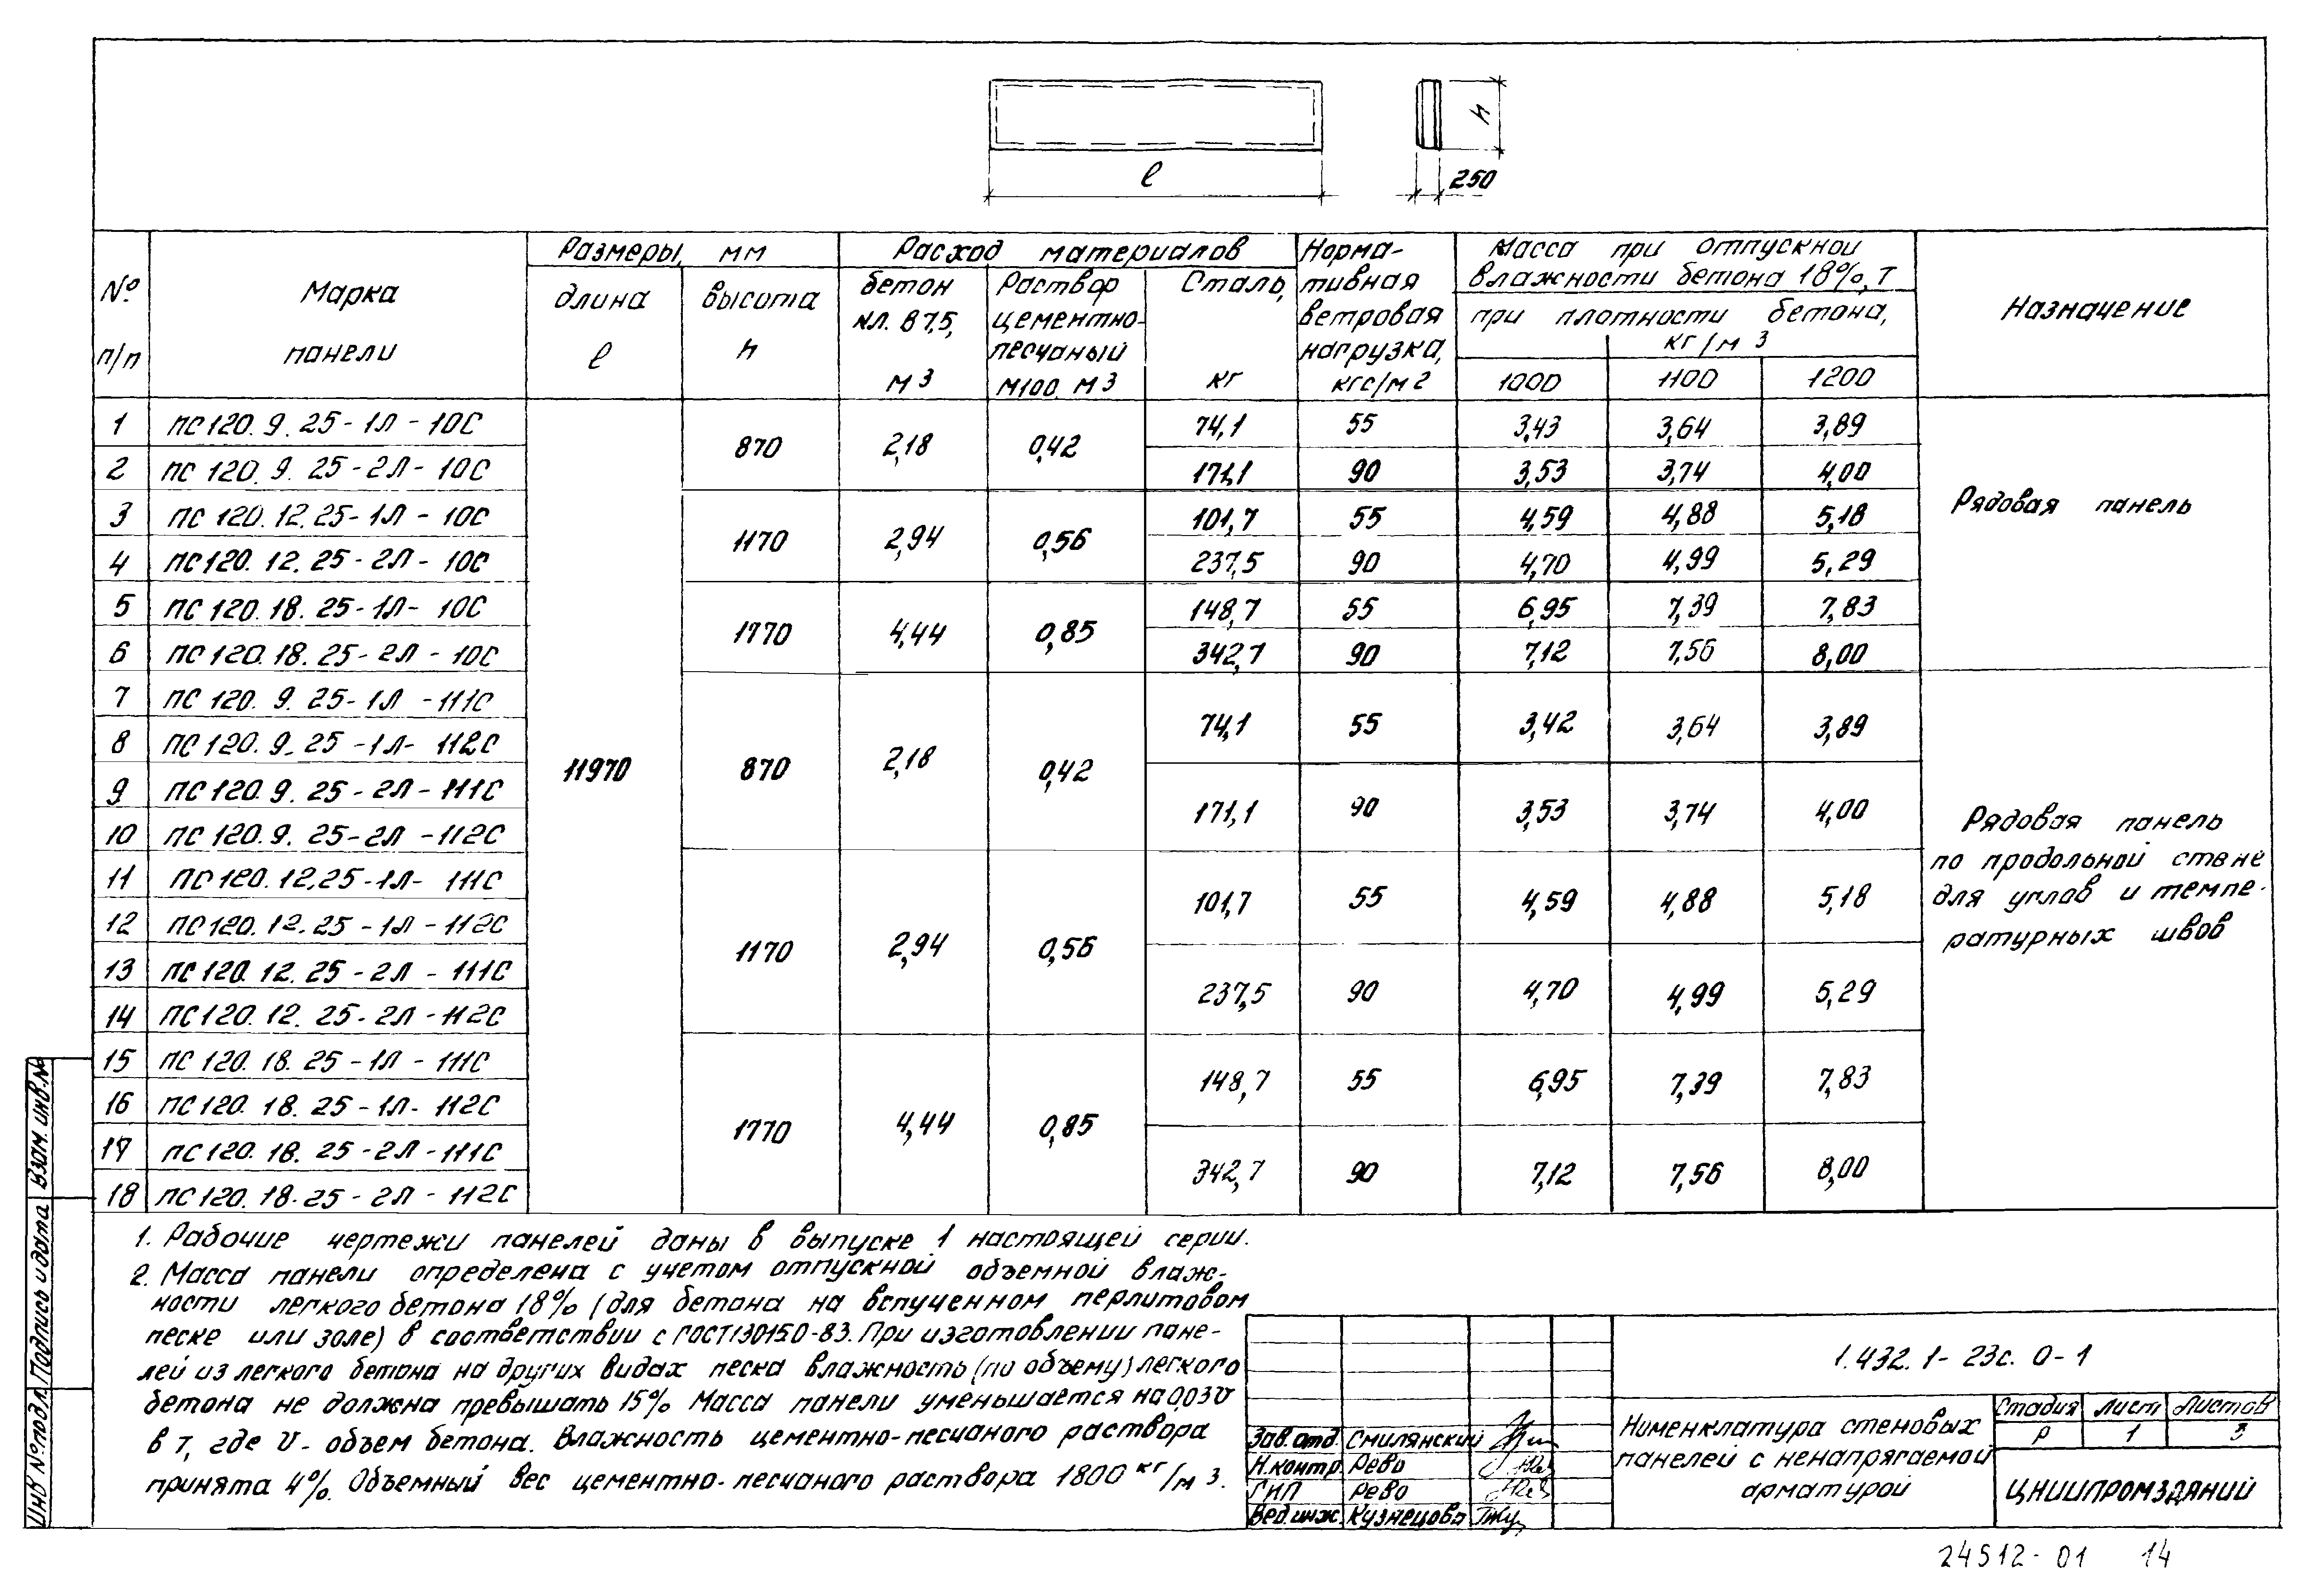 ℓ
h
250
№ п/п
Марка панели
Размеры, мм
длина ℓ
высота h
Расход материалов
бетон кл. В 7,5, м3
Раствор цементно-песчаный М100, м3
Сталь, кг
Нормативная ветровая нагрузка, кгс/м2
Масса при отпускной влажности бетона 18%, т
при плотности бетона, кг/м3
1000 1100 1200
Назначение
1 ПС120.9.25-1Л-10С 11970 870 2,18 0,42 74,1 55 3,43 3,64 3,89 Рядовая панель
2 ПС120.9.25-2Л-10С 171,1 90 3,53 3,74 4,00
3 ПС120.12.25-1Л-10С 1170 2,94 0,56 101,7 55 4,59 4,88 5,18
4 ПС120.12.25-2Л-10С 237,5 90 4,70 4,99 5,29
5 ПС120.18.25-1Л-10С 1770 4,44 0,85 148,7 55 6,95 7,39 7,83
6 ПС120.18.25-2Л-10С 342,7 90 7,12 7,56 8,00
7 ПС120.9.25-1Л-111С 870 2,18 0,42 74,1 55 3,42 3,64 3,89
8 ПС120.9.25-1Л-112С
9 ПС120.9.25-2Л-111С 171,1 90 3,53 3,74 4,00
10 ПС120.9.25-2Л-112С
11 ПС120.12.25-1Л-111С 1170 2,94 0,56 101,7 55 4,59 4,88 5,18
12 ПС120.12.25-1Л-112С
13 ПС120.12.25-2Л-111С 237,5 90 4,70 4,99 5,29
14 ПС120.12.25-2Л-112С
15 ПС120.18.25-1Л-111С 1770 4,44 0,85 148,7 55 6,95 7,39 7,83
16 ПС120.18.25-1Л-112С
17 ПС120.18.25-2Л-111С 342,7 90 7,12 7,56 8,00
18 ПС120.18.25-2Л-112С
Рядовая панель
по продольной стене
для углов и темпе-
ратурных швов
1. Рабочие чертежи панелей даны в выпуске 1 настоящей серии.
2. Масса панели определена с учетом отпускной объемной влаж-
ности легкого бетона 18% (для бетона на вспученном перлитовом
песке или золе) в соответствии с ГОСТ 13015.0-83. При изготовлении пане-
лей из легкого бетона на других видах песка влажность (по объему) легкого
бетона не должна превышать 15% Масса панели уменьшается на 0,03 V
в т, где V - объем бетона. Влажность цементно-песчаного раствора
принята 4%. Объемный вес цементно-песчаного раствора 1800 кг/м3.
Зав. отд. Смилянский
Н.контр. Рево
ГИП Рево
Вед.инж. Кузнецова
1.432.1-23с.0-1
Номенклатура стеновых
панелей с ненапрягаемой
арматурой
Стадия Лист Листов
Р 1 3
ЦНИИПРОМЗДАНИЙ
Взам. инв.№
Подпись и дата
Инв №подл.
24512-01 14